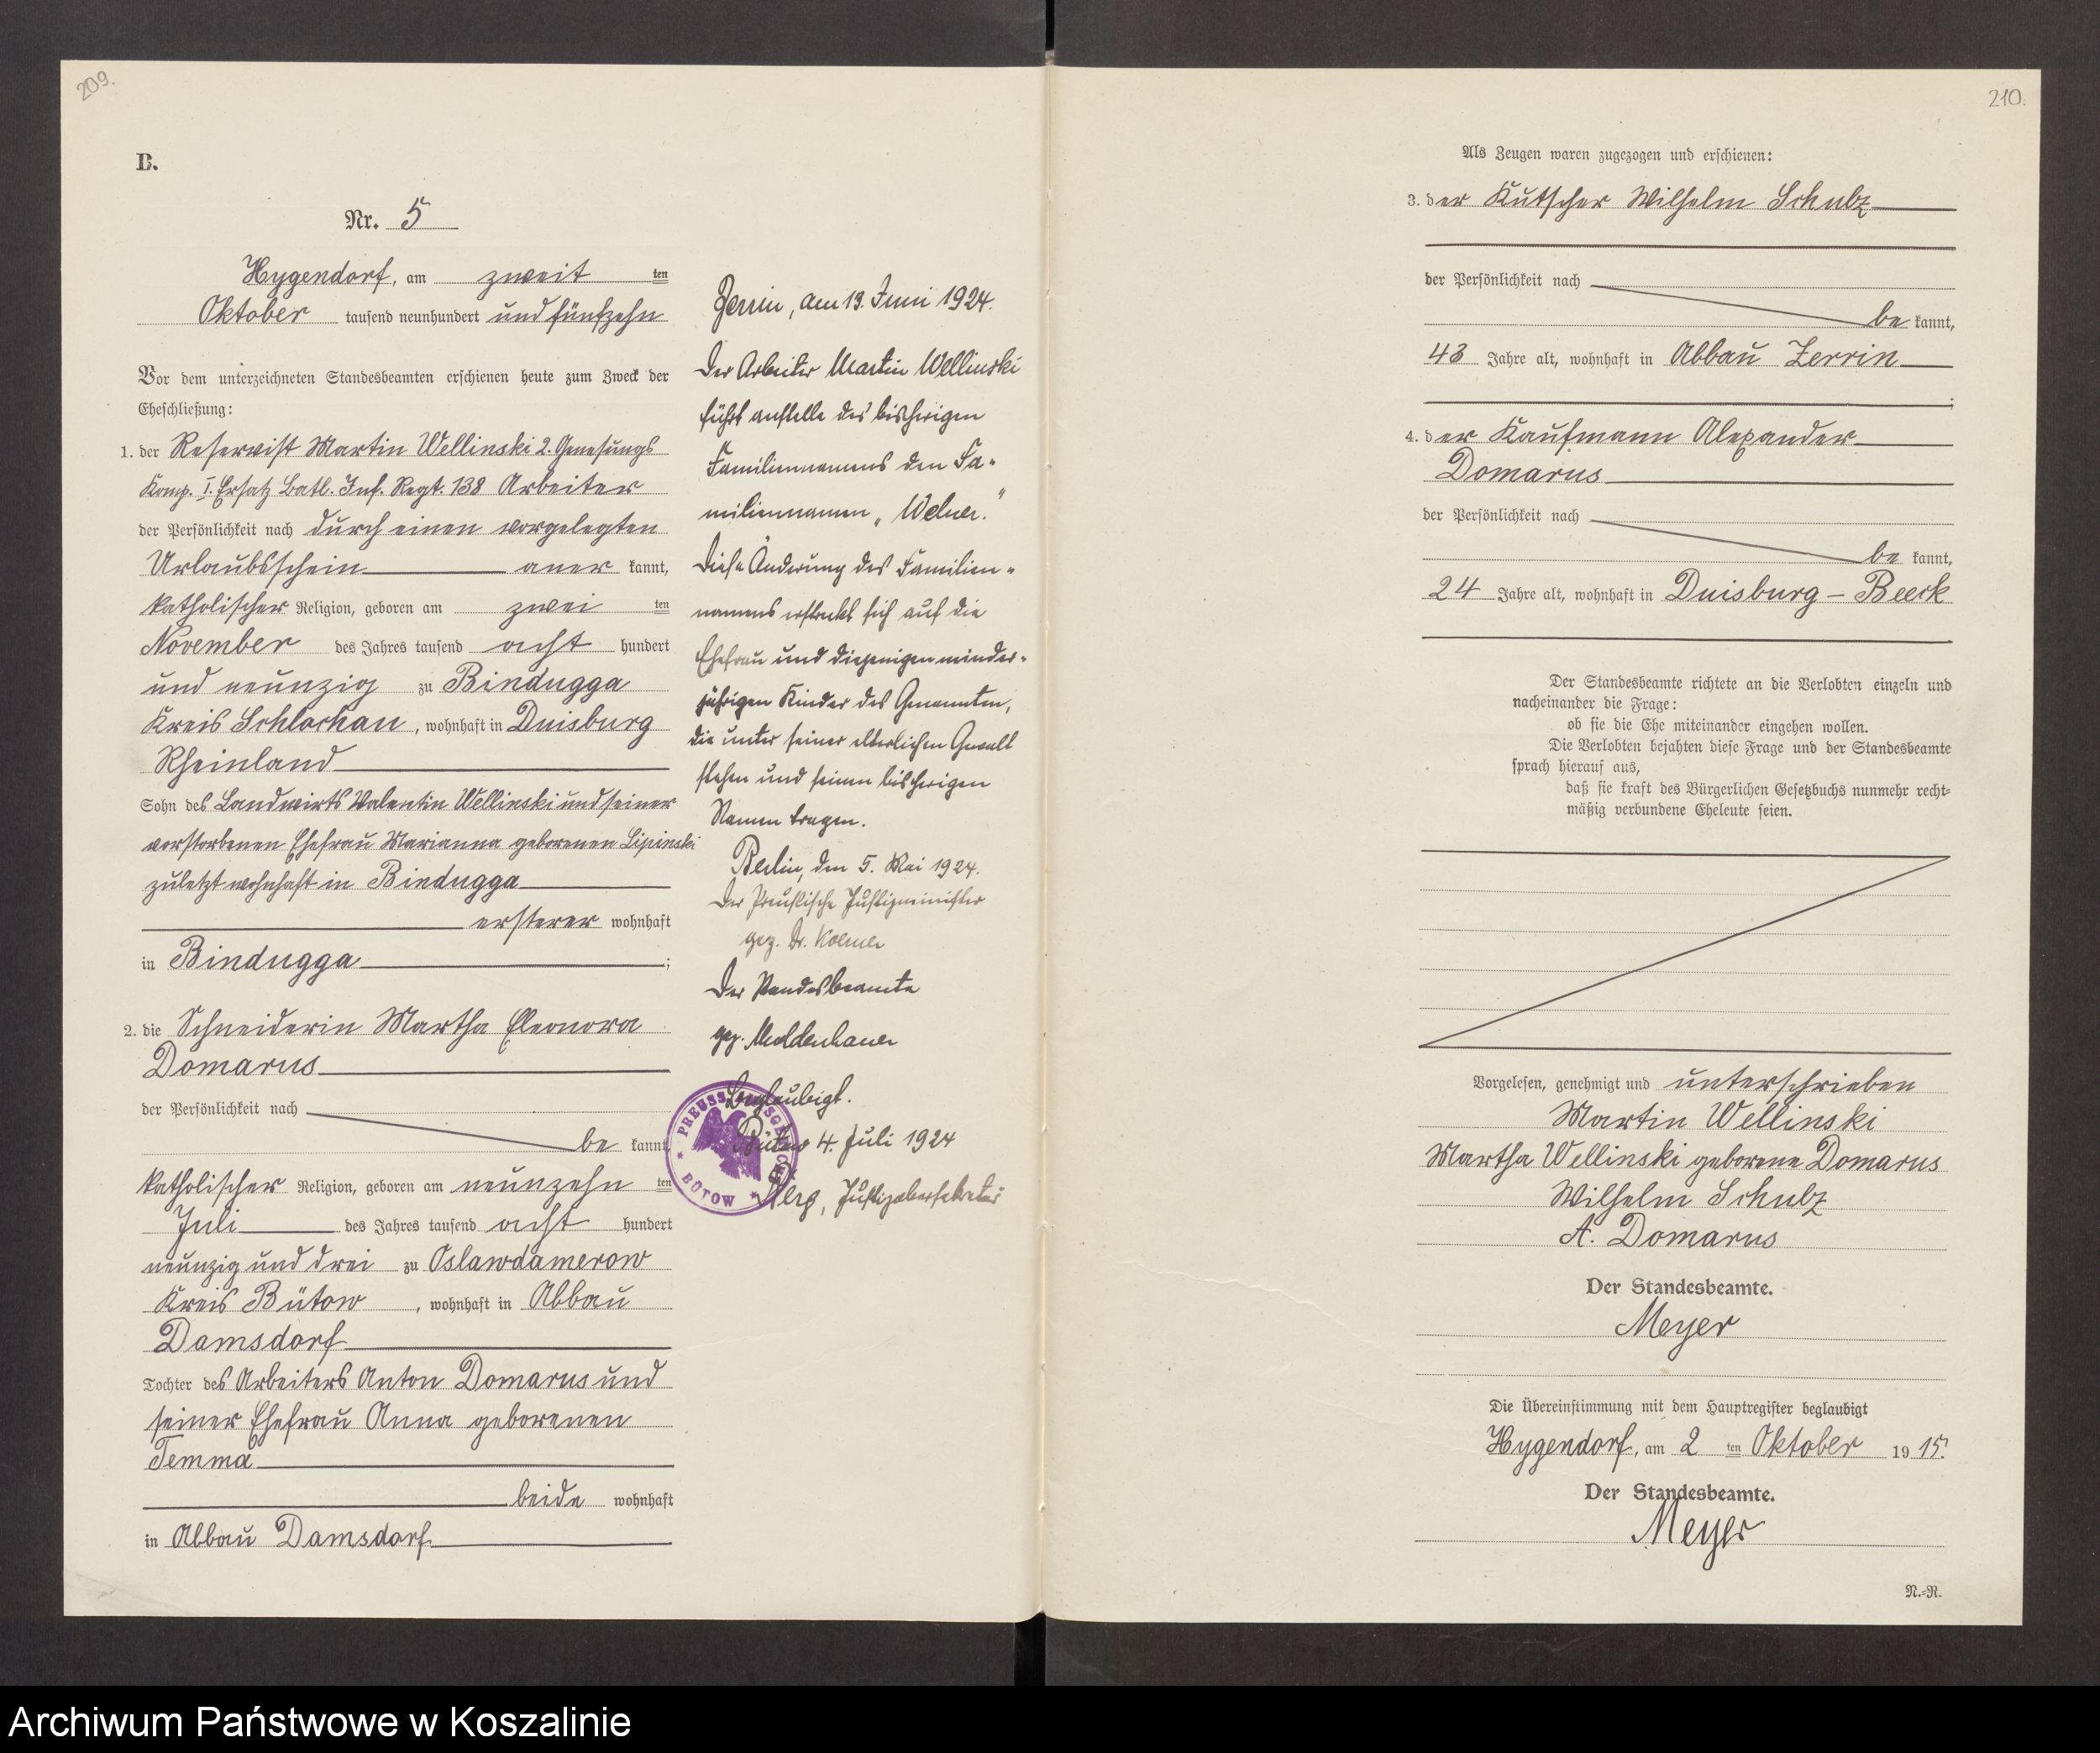 209.
B.
Nr. 5
Hygendorf, am zweit ten
Oktober tausend neunhundert und fünfzehn
Vor dem unterzeichneten Standesbeamten erschienen heute zum Zweck der
Eheschließung:
1. der Reservist Martin Wellinski 2. Genesungs
Komp. I. Ersatz Batl. Inf. Regt. 138 Arbeiter
der Persönlichkeit nach durch einen vorgelegten
Urlaubsschein aner kannt,
katholischer Religion, geboren am zwei ten
November des Jahres tausend acht hundert
und neunzig zu Bindugga
Kreis Schlochau, wohnhaft in Duisburg
Rheinland
Sohn des Landwirts Valentin Wellinski und seiner
verstorbenen Ehefrau Marianna geborenen Lipinski
zuletzt wohnhaft in Bindugga
ersterer wohnhaft
in Bindugga ;
2. die Schneiderin Martha Eleonora
Domarus
der Persönlichkeit nach
be kannt,
katholischer Religion, geboren am neunzehn ten
Juli des Jahres tausend acht hundert
neunzig und drei zu Oslawdamerow
Kreis Bütow, wohnhaft in Abbau
Damsdorf
Tochter des Arbeiters Anton Domarus und
seiner Ehefrau Anna geborenen
Temma
beide wohnhaft
in Abbau Damsdorf
Zerrin, am 13. Juni 1924.
Der Arbeiter Martin Wellinski
führt anstelle des bisherigen
Familiennamens den Fa-
miliennamen „Welner."
Diese Änderung des Familien-
namens erstreckt sich auf die
Ehefrau und diejenigen minder-
jährigen Kinder des Genannten,
die unter seiner elterlichen Gewalt
stehen und seinen bisherigen
Namen tragen.
Berlin, den 5. Mai 1924.
Der Preußische Justizminister
gez. Dr.
Der Standesbeamte
gez. Moldenhauer
Beglaubigt.
Bütow 4. Juli 1924
Justizobersekretär
PREUSS. AMTSGERICHT
* BÜTOW *
210.
Als Zeugen waren zugezogen und erschienen:
3. der Kutscher Wilhelm Schulz
der Persönlichkeit nach
be kannt,
43 Jahre alt, wohnhaft in Abbau Zerrin
;
4. der Kaufmann Alexander
Domarus
der Persönlichkeit nach
be kannt,
24 Jahre alt, wohnhaft in Duisburg – Beeck
Der Standesbeamte richtete an die Verlobten einzeln und
nacheinander die Frage:
ob sie die Ehe miteinander eingehen wollen.
Die Verlobten bejahten diese Frage und der Standesbeamte
sprach hierauf aus,
daß sie kraft des Bürgerlichen Gesetzbuchs nunmehr recht-
mäßig verbundene Eheleute seien.
Vorgelesen, genehmigt und unterschrieben
Martin Wellinski
Martha Wellinski geborene Domarus
Wilhelm Schulz
A. Domarus
Der Standesbeamte.
Meyer
Die Übereinstimmung mit dem Hauptregister beglaubigt
Hygendorf, am 2 ten Oktober 19 15.
Der Standesbeamte.
Meyer
N.-R.
Archiwum Państwowe w Koszalinie